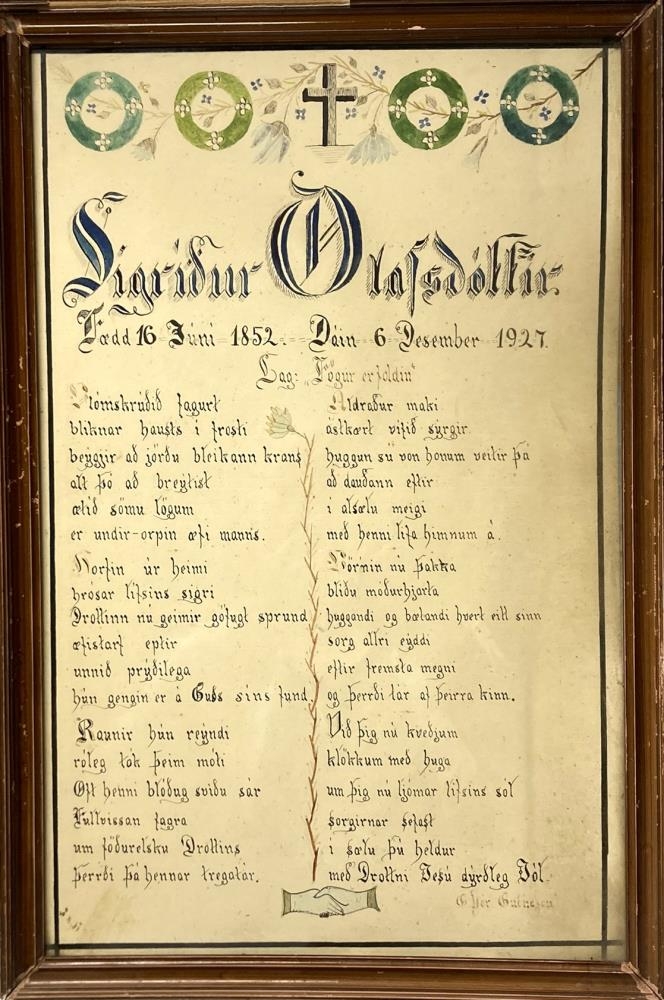 Sigríður Ólafsdóttir.
Fædd 16 Júni 1852. Dáin 6 Desember 1927.
Lag: "Fögur er foldin"
Blómskrúðið fagurt
bliknar hausts i frosti
beýgjir að jörðu bleikann krans
alt þó að breýtist
ætið sömu lögum
er undir-orpin æfi manns.
Horfin úr heimi
hrósar lifsins sigri
Drottinn nú geimir göfugt sprund
æfistarf eptir
unnið prýðilega
hún gengin er á Guðs sins fund.
Raunir hún reýndi
róleg tók þeim móti
Oft henni blóðug sviðu sár
Fullvissan fagra
um föðurelsku Drottins
þerrði þá hennar tregatár.
Aldraður maki
ástkært vifið sýrgir
huggun sú von honum veitir þá
að dauðann eftir
i alsælu meigi
með henni lifa himnum á.
Börnin nú þakka
bliðu móðurhjarta
huggandi og bætandi hvert eitt sinn
sorg allri eýddi
eftir fremsta megni
og þerrði tár af þeirra kinn.
Við þig nú kveðjum
klökkum með huga
um þig nú ljómar lifsins sól
sorgirnar sefast
i sælu þú heldur
með Drottni Jesú dýrðleg Jól.